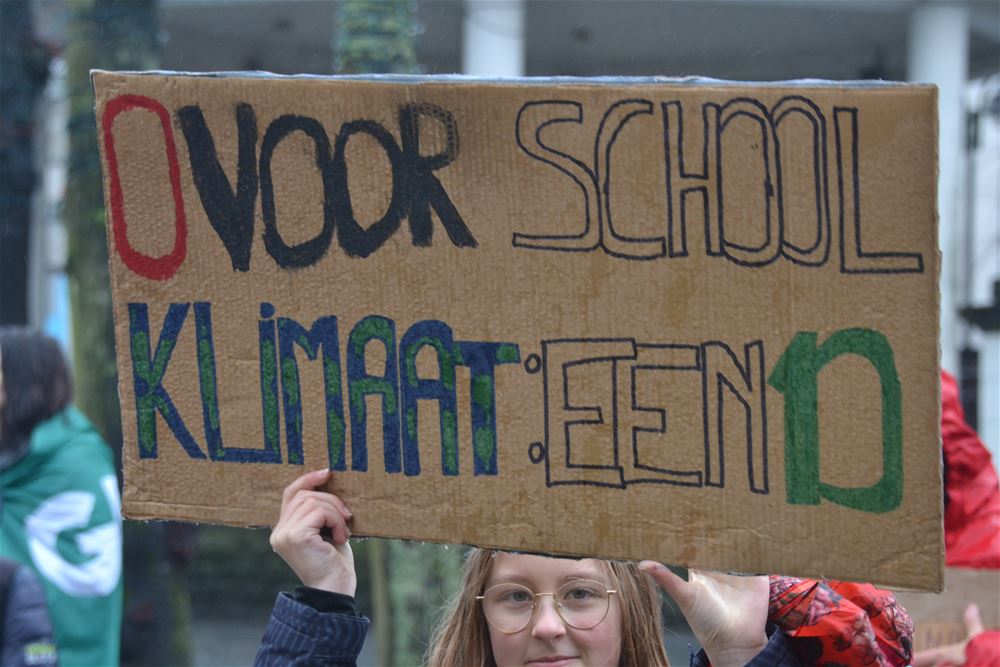 0 VOOR SCHOOL
KLiMAAT: EEN 10
G